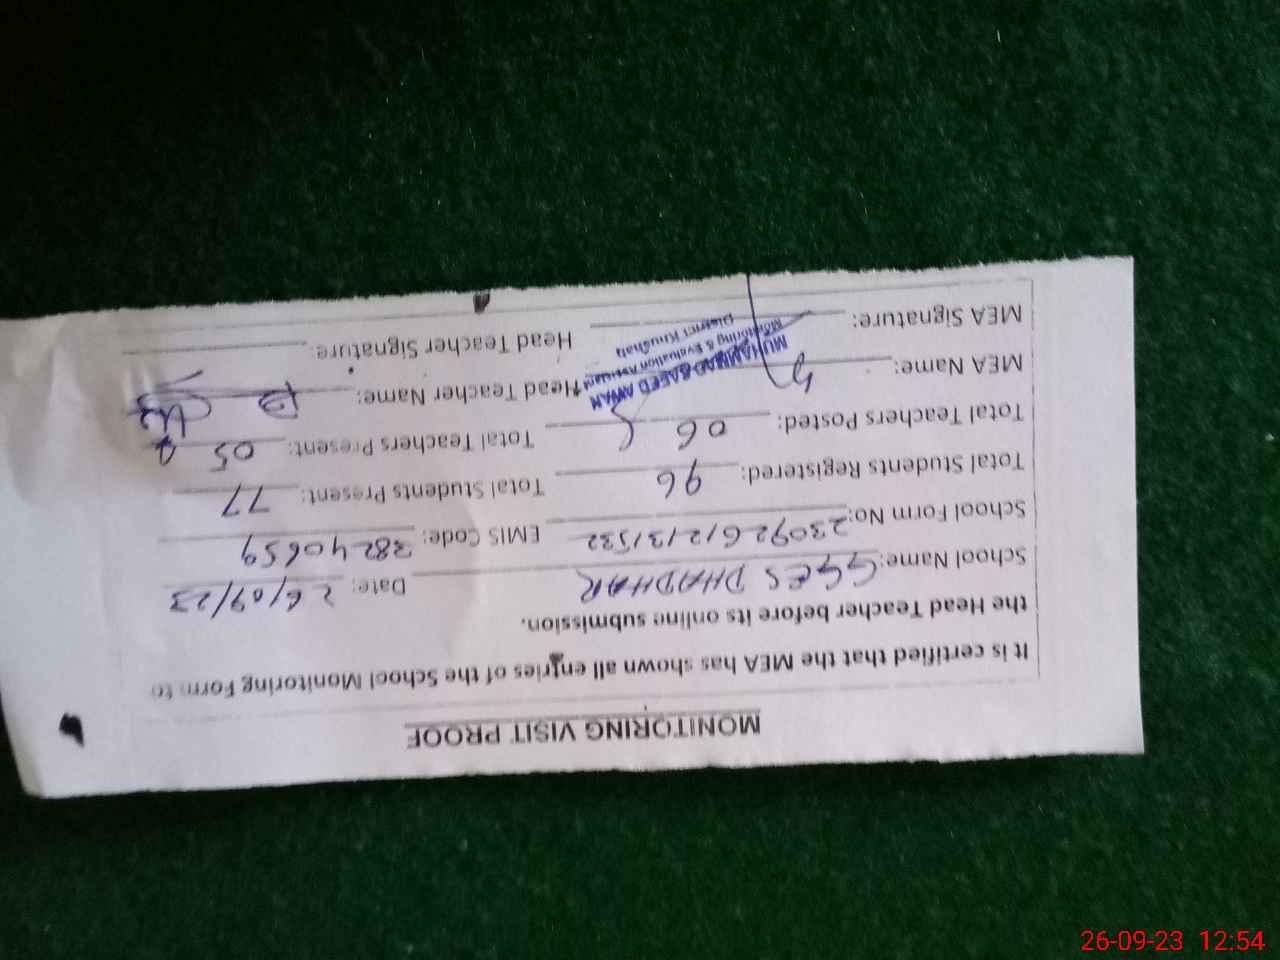 MONITORING VISIT PROOF
It is certified that the MEA has shown all entries of the School Monitoring Form to
the Head Teacher before its online submission.
School Name: GGES DHADHAR Date: 26/09/23
School Form No: 23092612131532 EMIS Code: 38240659
Total Students Registered: 96 Total Students Present: 77
Total Teachers Posted: 06 Total Teachers Present: 05
MEA Name: Head Teacher Name:
MUHAMMAD SAEED AWAN
Monitoring & Evaluation Assistant
District Khushab
MEA Signature: Head Teacher Signature:
26-09-23 12:54